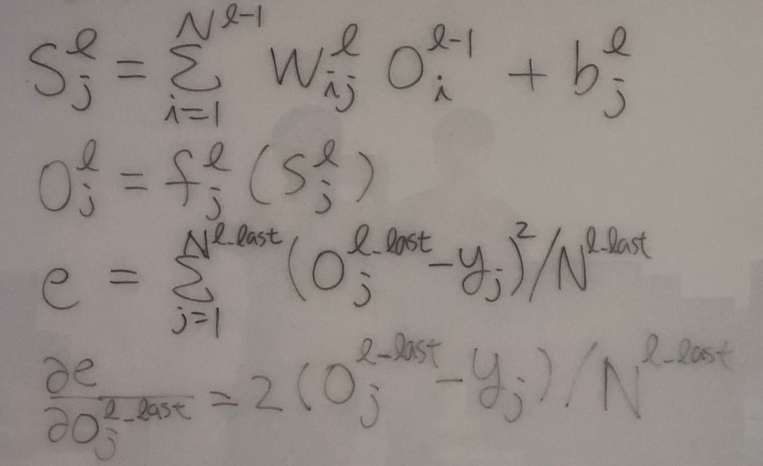 S_j^l = \sum_{i=1}^{N^{l-1}} W_{ij}^l O_i^{l-1} + b_j^l
O_j^l = f_j^l (S_j^l)
e = \sum_{j=1}^{N^{l_last}} (O_j^{l_last} - y_j)^2 / N^{l_last}
\frac{∂e}{∂O_j^{l_last}} = 2 (O_j^{l-last} - y_j) / N^{l-last}